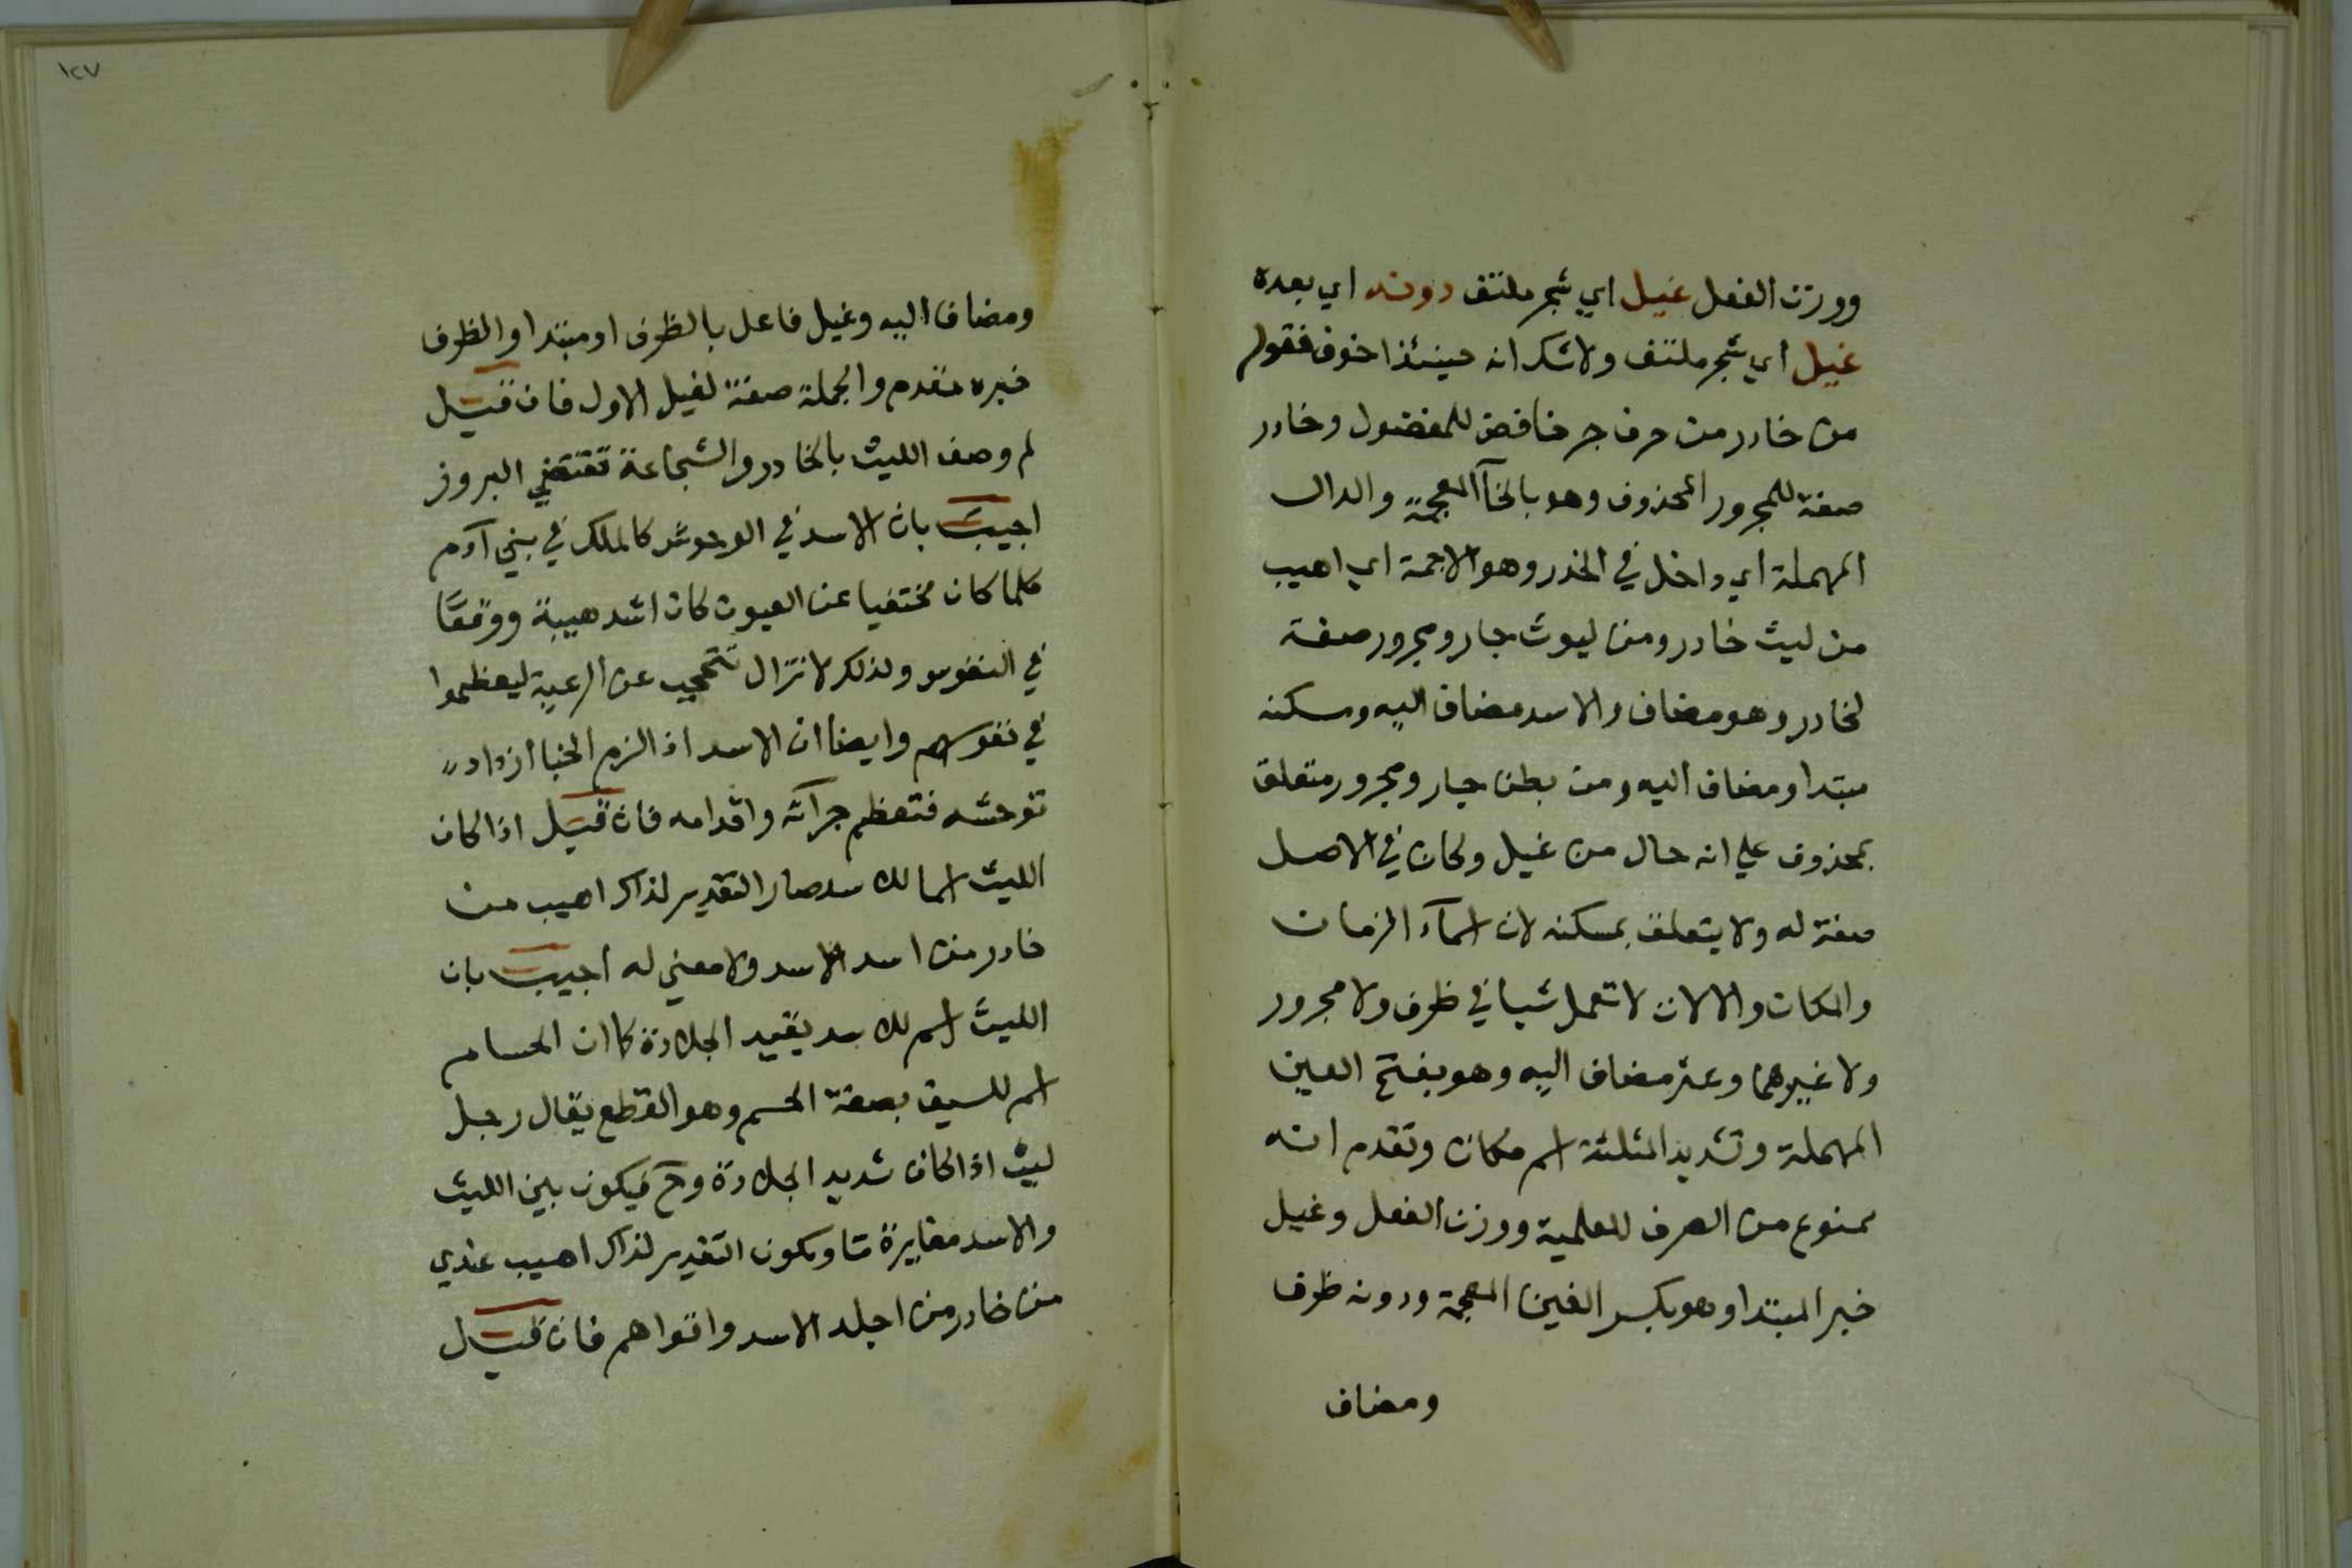 ووزن الفعل غيل اي شجر ملتف دونه اي بعده
غيل اي شجر ملتف ولا شك انه حينئذ اخوف فقوله
من خادر من حرف جر خافض للمفضول وخادر
صفة للمجرور المحذوف وهو بالخآ المعجمة والدال
المهملة اي داخل في الخدر وهو الاجمة اي اهيب
من ليث خادر ومن ليوث جار ومجرور صفة
لخادر وهو مضاف والاسد مضاف اليه ومسكنه
مبتدا ومضاف اليه ومن بطن جار ومجرور متعلق
بمحذوف علي انه حال من غيل وكان في الاصل
صفة له ولا يتعلق بمسكنه لان اسمآء الزمان
والمكان والالات لا تعمل شيا في ظرف ولا مجرور
ولا غيرهما وعثر مضاف اليه وهو بفتح العين
المهملة وتشديد المثلثة اسم مكان وتقدم انه
ممنوع من الصرف للعلمية ووزن الفعل وغيل
خبر المبتدا وهو بكسر الغين المعجمة ودونه ظرف
ومضاف
١٢٧
ومضاف اليه وغيل فاعل بالظرف او مبتدا والظرف
خبره مقدم والجملة صفة لغيل الاول فان قيل
لم وصف الليث بالخادر والشجاعة تقتضي البروز
اجيب بان الاسد في الوحوش كالملك في بني آدم
كلما كان مختفيا عن العيون كان اشد هيبة ووقعًا
في النفوس ولذلك لا تزال تتحجب عن الرعية ليعظموا
في نفوسهم وايضا ان الاسد اذا لزم الخبا ازداد
توحشه فتعظم جرآته واقدامه فان قيل اذا كان
الليث اسما للاسد صار التقدير لذاك اهيب من
خادر من اسد الاسد ولا معني له اجيب بان
الليث اسم للاسد يقيد الجلادة كما ان الحسام
اسم للسيف بصفة الحسم وهو القطع يقال رجل
ليث اذا كان شديد الجلادة وح فيكون بين الليث
والاسد مغايرة ما ويكون التقدير لذاك اهيب عندي
من خادر من اجلد الاسد واقواهم فان قيل